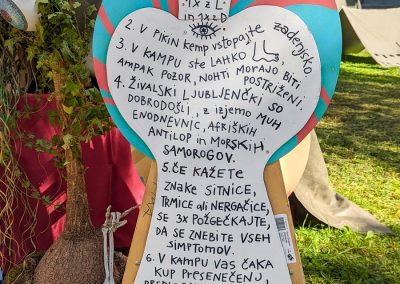 1x Z L
in 1x Z D
2. V PIKIN kemp vstopajte zadenjsko
3. V KAMPU ste LAHKO
AMPAK POZOR, NOHTI MORAJO BITI
POSTRIŽENI.
4. ŽIVALSKI LJUBLJENČKI SO
DOBRODOŠLI, z izjemo MUH
ENODNEVNIC, AFRIŠKIH
ANTILOP in MORSKIH
SAMOROGOV.
5. ČE KAŽETE
ZNAKE SITNICE,
TRMICE ali NERGAČICE,
SE 3X POŽGEČKAJTE,
DA SE ZNEBITE VSEH
SIMPTOMOV.
6. V KAMPU VAS ČAKA
KUP PRESENEČENJ,